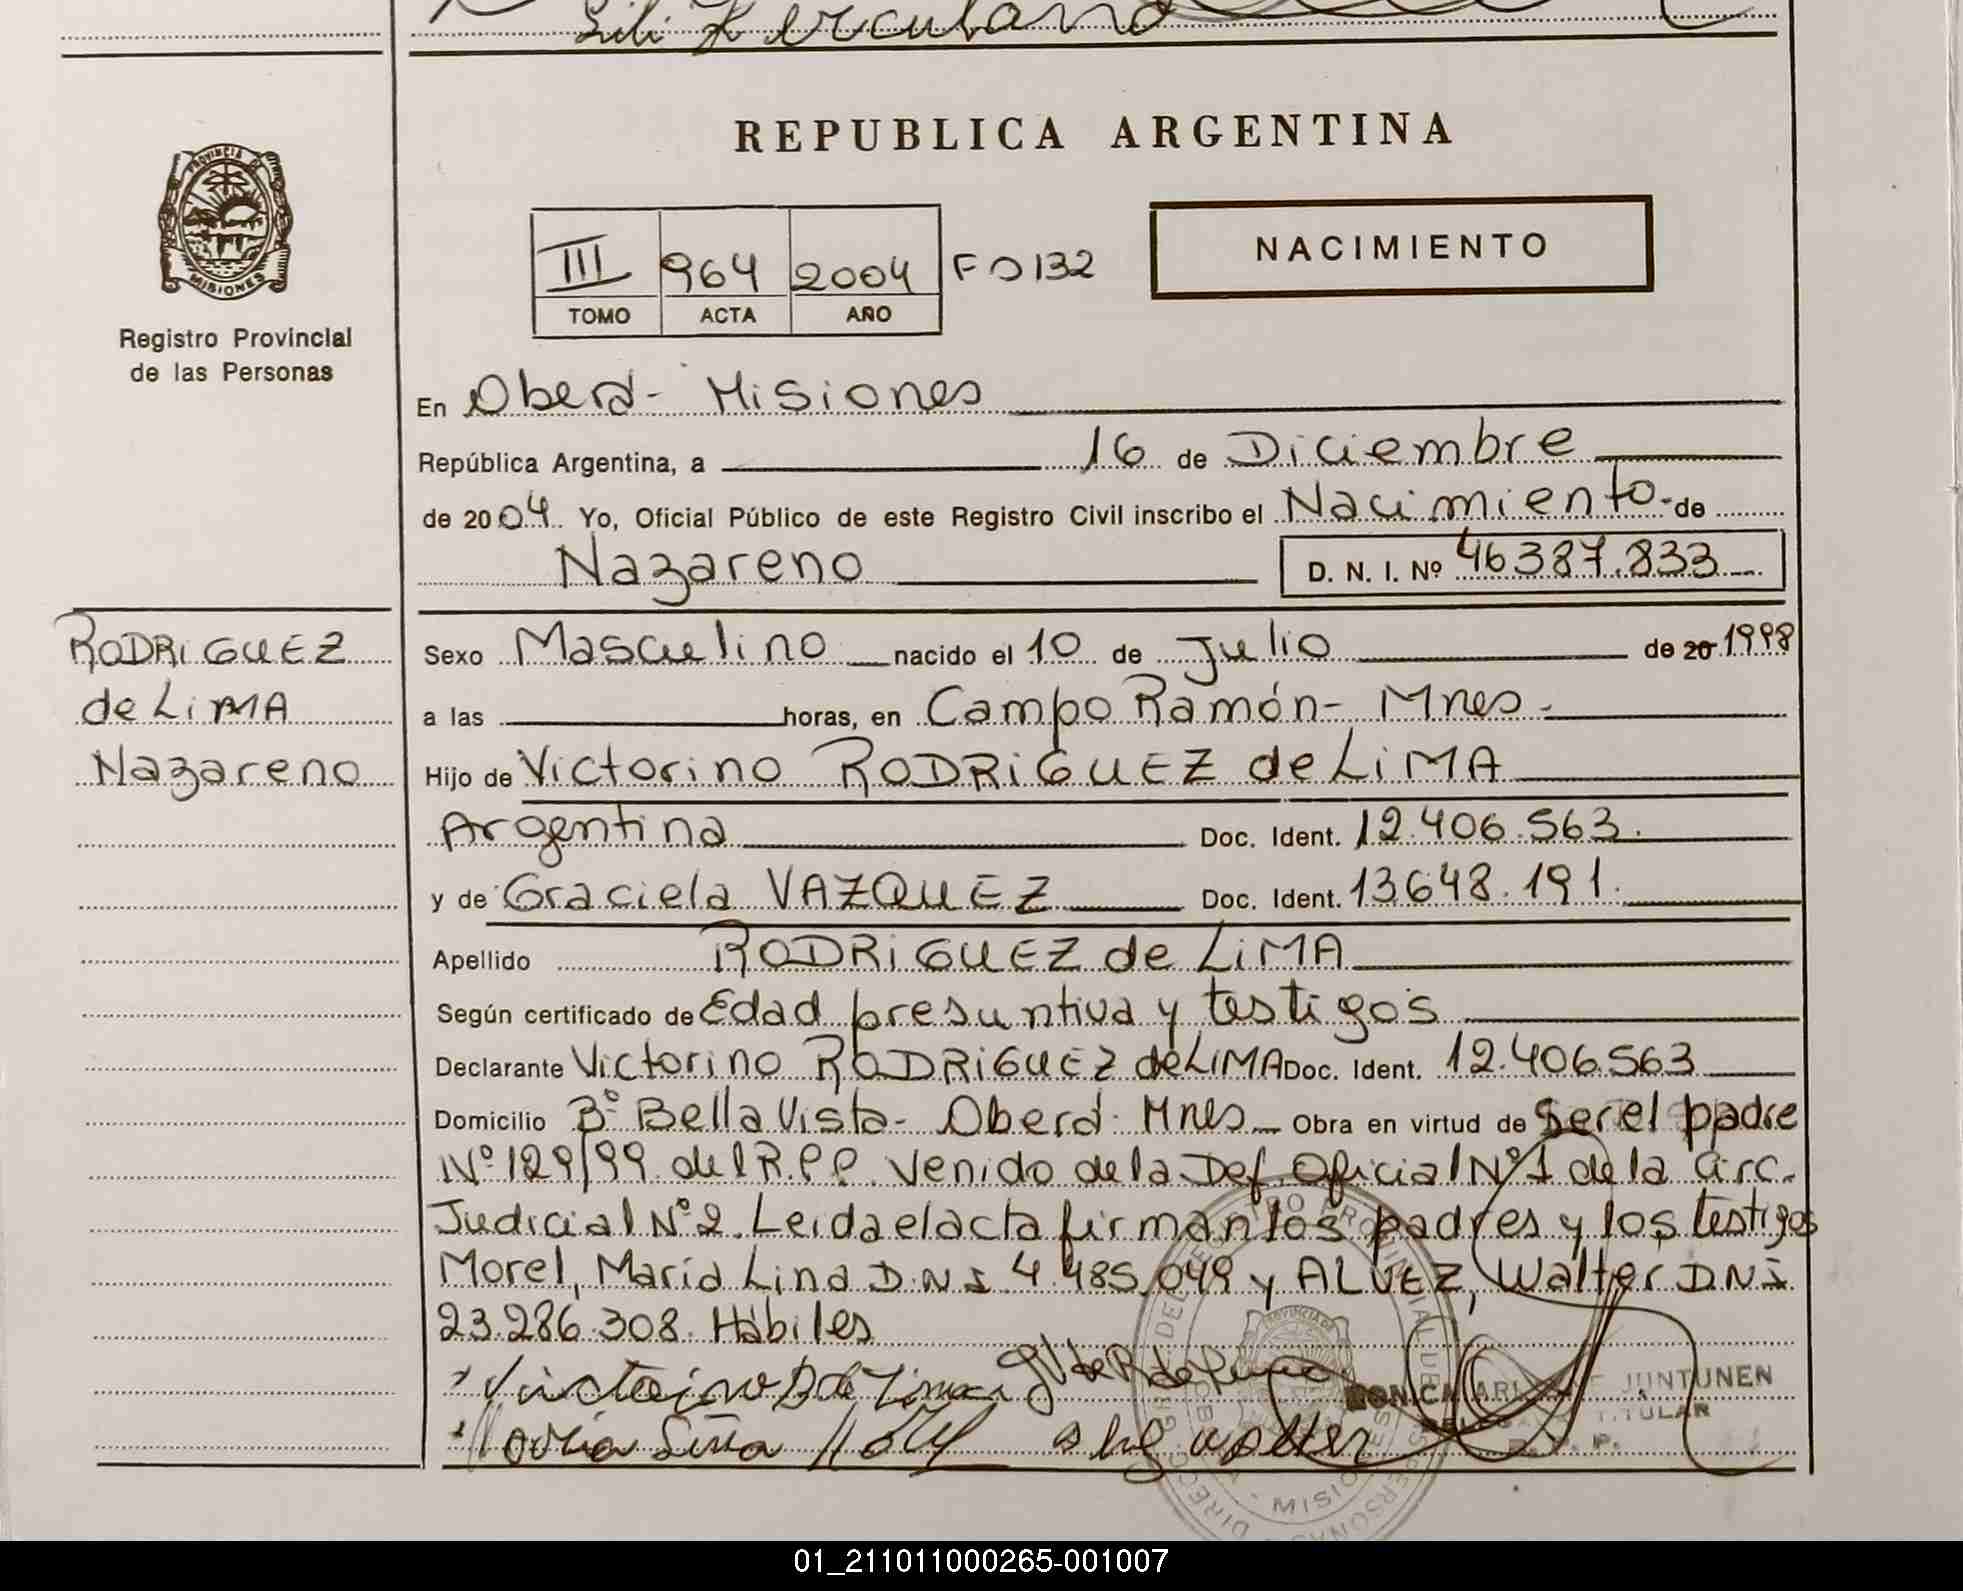 Lili Herculano
PROVINCIA DE
MISIONES
Registro Provincial
de las Personas
REPUBLICA ARGENTINA
III 964 2004 Fo 132
TOMO ACTA AÑO
NACIMIENTO
En Oberá- Misiones
República Argentina, a 16 de Diciembre
de 2004 Yo, Oficial Público de este Registro Civil inscribo el Nacimiento de
Nazareno D. N. I. Nº 46387.833
RODRIGUEZ
de LiMA
Nazareno
Sexo Masculino nacido el 10 de Julio de 20 1998
a las horas, en Campo Ramón- Mnes.
Hijo de Victorino RODRIGUEZ de LiMA
Argentina Doc. Ident. 12.406.563.
y de Graciela VAZQUEZ Doc. Ident. 13648.191.
Apellido RODRIGUEZ de LiMA
Según certificado de Edad presuntiva y testigos
Declarante Victorino RODRIGUEZ de LIMA Doc. Ident. 12.406.563
Domicilio Bº Bella Vista- Oberá- Mnes Obra en virtud de Ser el padre
Nº 129/99 del R.P.P. Venido de la Def. Oficial Nº 1 de la Circ.
Judicial Nº 2. Leida el acta firman los padres y los testigos
Morel, Maria Lina D.N.I 4.485.049 y ALVEZ, Walter D.N.I.
23.286.308. Hábiles
JUNTUNEN
TITULAR
R. P. P.
01_211011000265-001007